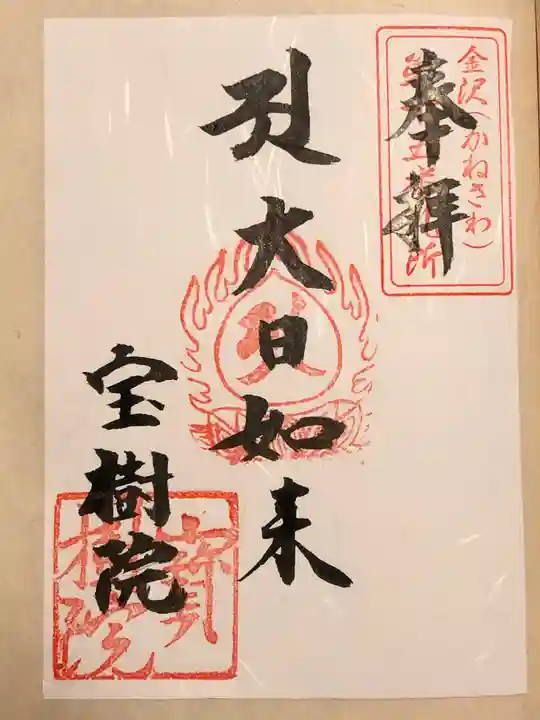 金沢(かねさわ)
奉拝
大日如来
宝樹院
寶樹院